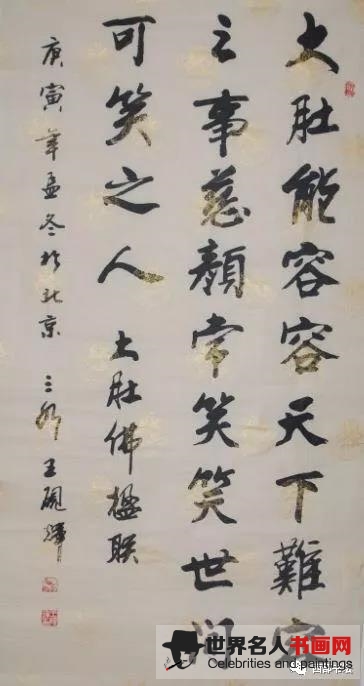 大肚能容容天下難容
之事慈顏常笑笑世间
可笑之人 大肚佛楹联
庚寅年孟冬於北京 王硯
世界名人书画网
Celebrities and paintings